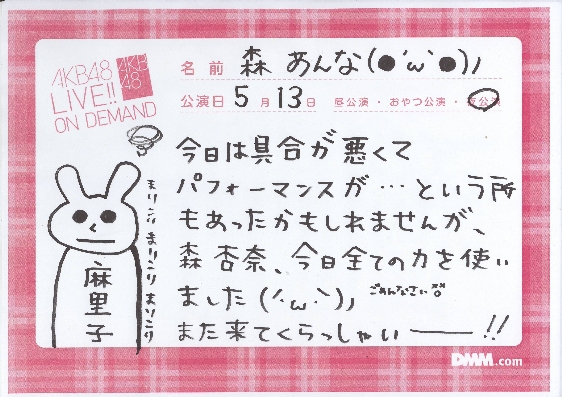 AKB48
LIVE!!
ON DEMAND
AKB
48
名前 森 あんな(●´ω`●)ノ
公演日 5月13日 昼公演・おやつ公演・夜公演
今日は具合が悪くて
パフォーマンスが…という所
もあったかもしれませんが、
森杏奈、今日全ての力を使い
ました(´・ω・`)ノ ごめんなさい
また来てくらっしゃい――!!
まりこり まりこり まりこり
麻里子
DMM.com